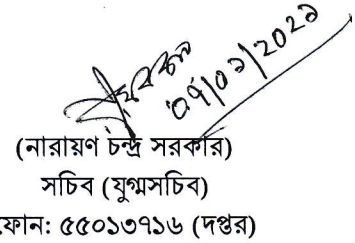 ০৭/০১/২০২১
(নারায়ণ চন্দ্র সরকার)
সচিব (যুগ্মসচিব)
ফোন: ৫৫০১৩৭১৬ (দপ্তর)